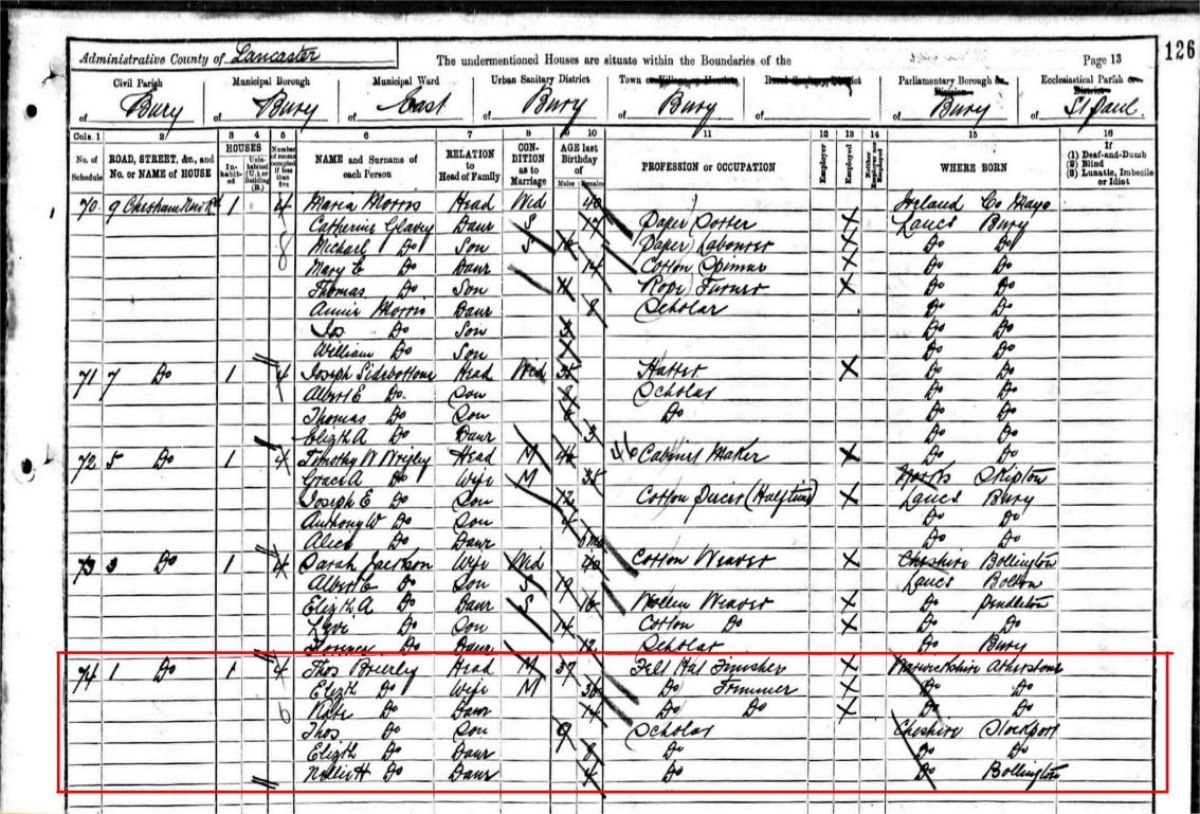 126
Administrative County of Lancaster The undermentioned Houses are situate within the Boundaries of the Page 13
Civil Parish Municipal Borough Municipal Ward Urban Sanitary District Town or Village or Hamlet Rural Sanitary District Parliamentary Borough or Division Ecclesiastical Parish or District
of Bury of Bury of East of Bury of Bury of of Bury of St Paul.
Cols. 1 2 3 4 5 6 7 8 9 10 11 12 13 14 15 16
No. of Schedule ROAD, STREET, &c., and No. or NAME of HOUSE HOUSES In-habit-ed Unin-habited (U.) or Building (B.) Number of rooms occupied if less than five NAME and Surname of each Person RELATION to Head of Family CON-DITION as to Marriage AGE last Birthday of Males Females PROFESSION or OCCUPATION Employer Employed Neither Employer nor Employed WHERE BORN If (1) Deaf-and-Dumb (2) Blind (3) Lunatic, Imbecile or Idiot
70 9 Chesham New Rd 1 4 Maria Morris Head Wid 40 Ireland Co Mayo
Catherine Glavey Daur S 17 Paper Sorter X Lancs Bury
8 Michael Do Son S 16 (Paper) Labourer X Do Do
Mary E Do Daur 14 Cotton Spinner X Do Do
Thomas Do Son 11 (Rope) Turner X Do Do
Annie Morris Daur 8 Scholar Do Do
Jos Do Son 3 Do Do
William Do Son 1 Do Do
71 7 Do 1 4 Joseph Sidebottom Head Wid 35 Hatter X Do Do
Albert E Do Son 8 Scholar Do Do
Thomas Do Son 6 Do Do Do
Elizth A Do Daur 3 Do Do
72 5 Do 1 4 Timothy W Wrigley Head M 46 46 Cabinet Maker X Do Do
Grace A Do Wife M 35 Yorks Skipton
Joseph E Do Son 12 Cotton Piecer (Half time) X Lancs Bury
Anthony W Do Son 4 Do Do
Alice Do Daur mo Do Do
73 3 Do 1 4 Sarah Jackson Wife Wid 40 Cotton Weaver X Cheshire Bollington
Albert E Do Son S 19 Lancs Bolton
Elizth A Do Daur S 16 Wollen Weaver X Do Pendleton
Levi Do Son 14 Cotton Do X Do Do
Florence Do Daur 12 Scholar Do Bury
74 1 Do 1 4 Thos Brierley Head M 37 Felt Hat Finisher X Warwickshire Atherstone
Elizth Do Wife M 36 Do Trimmer X Do Do
6 Kate Do Daur 14 Do Do X Do Do
Thos Do Son 9 Scholar Cheshire Stockport
Elizth Do Daur 8 Do Do Do
Nellie H Do Daur 4 Do Do Bollington